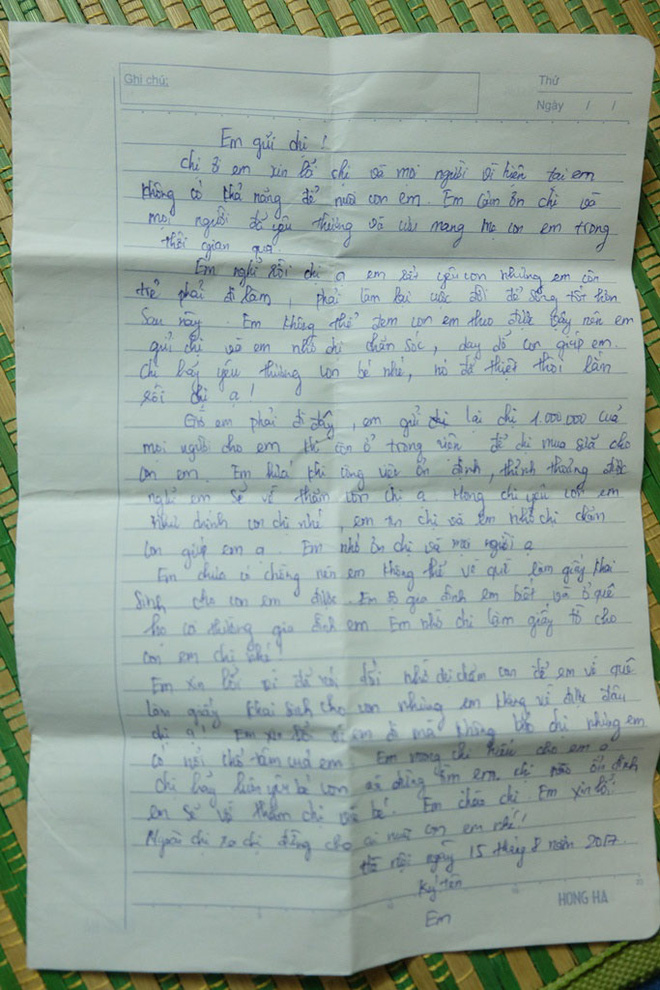 Ghi chú:
Thứ
Ngày / /
Em gửi chị!
Chị ơi em xin lỗi chị và mọi người vì hiện tại em
không có khả năng để nuôi con em. Em cảm ơn chị và
mọi người đã yêu thương và cưu mang mẹ con em trong
thời gian qua.
Em nghĩ rồi chị ạ em rất yêu con nhưng em còn
trẻ phải đi làm, phải làm lại cuộc đời để sống tốt hơn
sau này. Em không thể đem con em theo được vậy nên em
gửi chị và em nhờ chị chăm sóc, dạy dỗ con giúp em.
Chị hãy yêu thương con bé nhé, nó đã thiệt thòi lắm
rồi chị ạ!
Giờ em phải đi đây, em gửi lại chị 1.000.000 của
mọi người cho em khi còn ở trong viện để chị mua sữa cho
con em. Em hứa khi công việc ổn định, thỉnh thoảng được
nghỉ em sẽ về thăm con chị ạ. Mong chị yêu con em
như chính con chị nhé, em tin chị và em nhờ chị chăm
con giúp em ạ. Em nhớ ơn chị và mọi người ạ
Em chưa có chồng nên em không thể về quê làm giấy khai
sinh cho con em được. Em sợ gia đình em biết và ở quê
họ cười gia đình em Em nhờ chị làm giấy tờ cho
con em chị nhé!
Em xin lỗi vì đã nói dối nhờ chị chăm con để em về quê
làm giấy khai sinh cho con nhưng em không về được đâu
chị ạ! Em xin lỗi vì em đi mà không báo chị nhưng em
có nỗi khổ tâm của em. Em mong chị hiểu cho em ạ
Chị hãy yêu bé con và đừng tìm em, chị nào ổn định
em sẽ về thăm chị và bé. Em chào chị. Em xin lỗi!
Ngoài chị ra chị đừng cho ai nuôi con em nhé!
Hà nội ngày 15 tháng 8 năm 2017.
Ký tên
Em
HONG HA